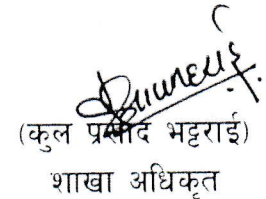 (कुल प्रसाद भट्टराई)
शाखा अधिकृत